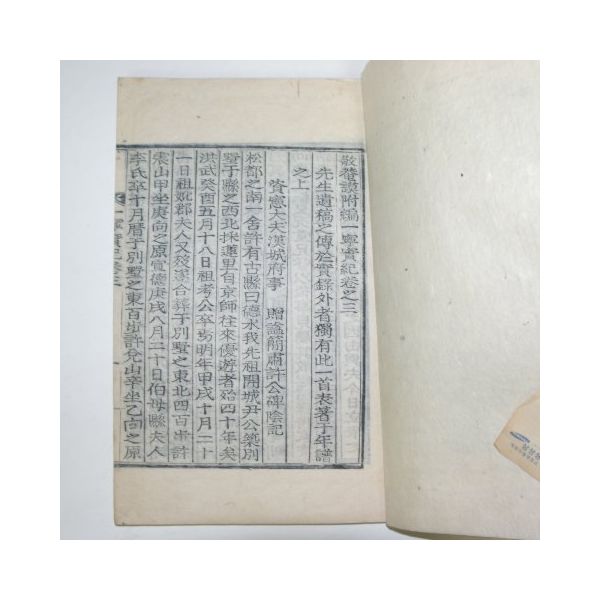 敬菴謨附編一寧實紀卷之三
先生遺稿之傳於實錄外者獨有此一首表著于年譜
之上
資憲大夫漢城府事 贈諡簡肅許公碑陰記
松都之南一舍許有古縣曰德水我先祖開城尹公築別
墅于縣之西北採蓮里自京師往來優遊者始四十年矣
洪武癸酉五月十八日祖考公卒焉明年甲戌十月二十
一日祖妣郡夫人又歿遂合葬于別墅之東北四百步許
震山甲坐庚向之原宣德庚戌八月二十日伯母縣夫人
李氏卒十月厝于別墅之東百步許兌山辛坐乙向之原
一寧實紀卷三